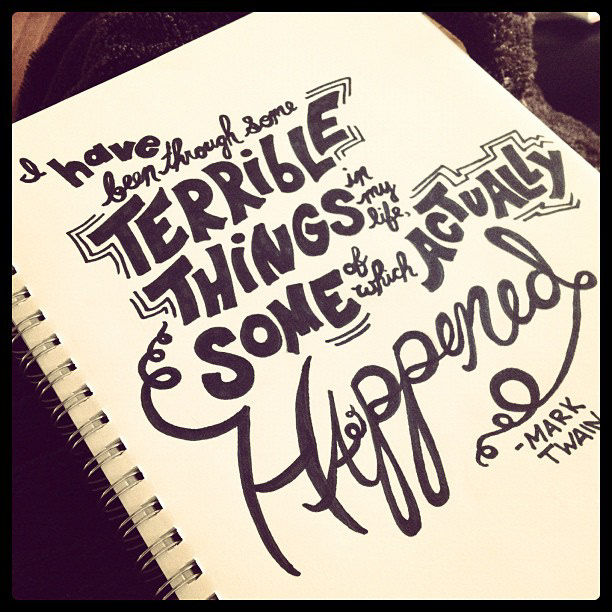 I have been through some
TERRIBLE
THINGS in my life,
SOME of which ACTUALLY
Happened
-MARK
TWAIN